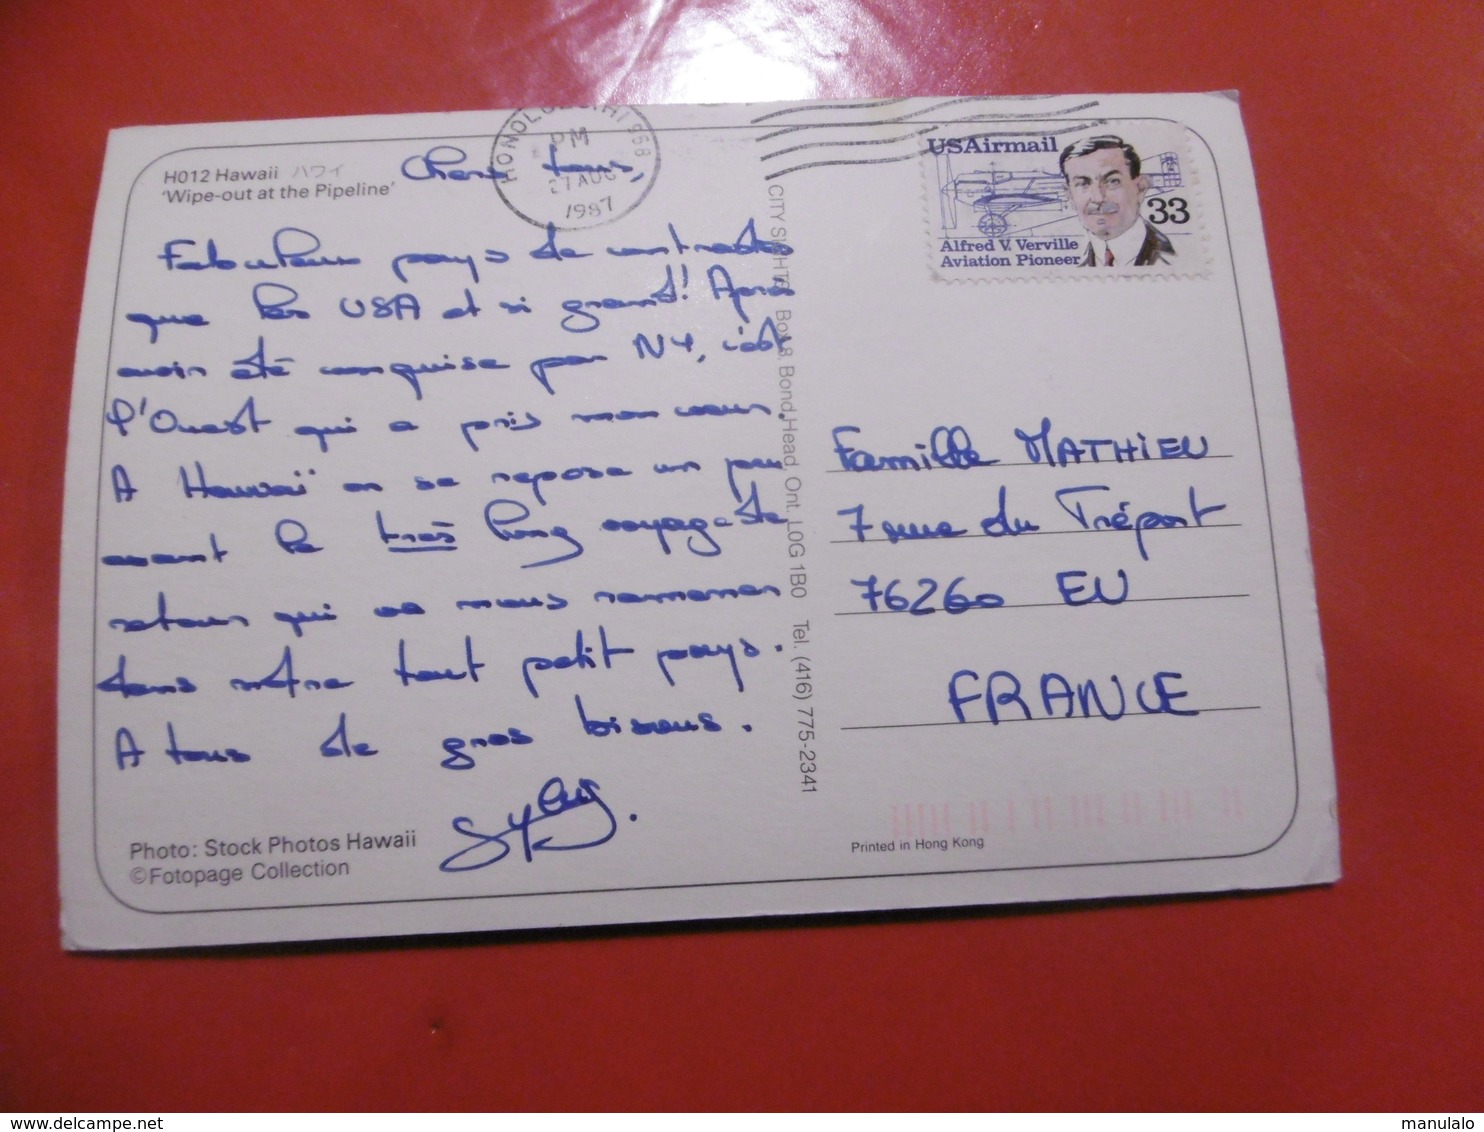 H012 Hawaii ハワイ
'Wipe-out at the Pipeline'
Chers tous,
Fabuleux pays de contrastes
que les USA et si grand! Après
avoir été conquise par NY, c'est
l'Ouest qui a pris mon coeur.
A Hawaï on se repose un peu
avant le très long voyage de
retour qui va nous ramener
dans notre tout petit pays.
A tous de gros bisous.
Photo: Stock Photos Hawaii
©Fotopage Collection
HONOLULU, HI 968
PM
27 AUG
1987
CITY SIGHTS Box 8. Bond Head, Ont. L0G 1B0 Tel. (416) 775-2341
USAirmail
33
Alfred V. Verville
Aviation Pioneer
Famille MATHIEU
7 rue du Tréport
76260 EU
FRANCE
Printed in Hong Kong
manulalo
delcampe.net